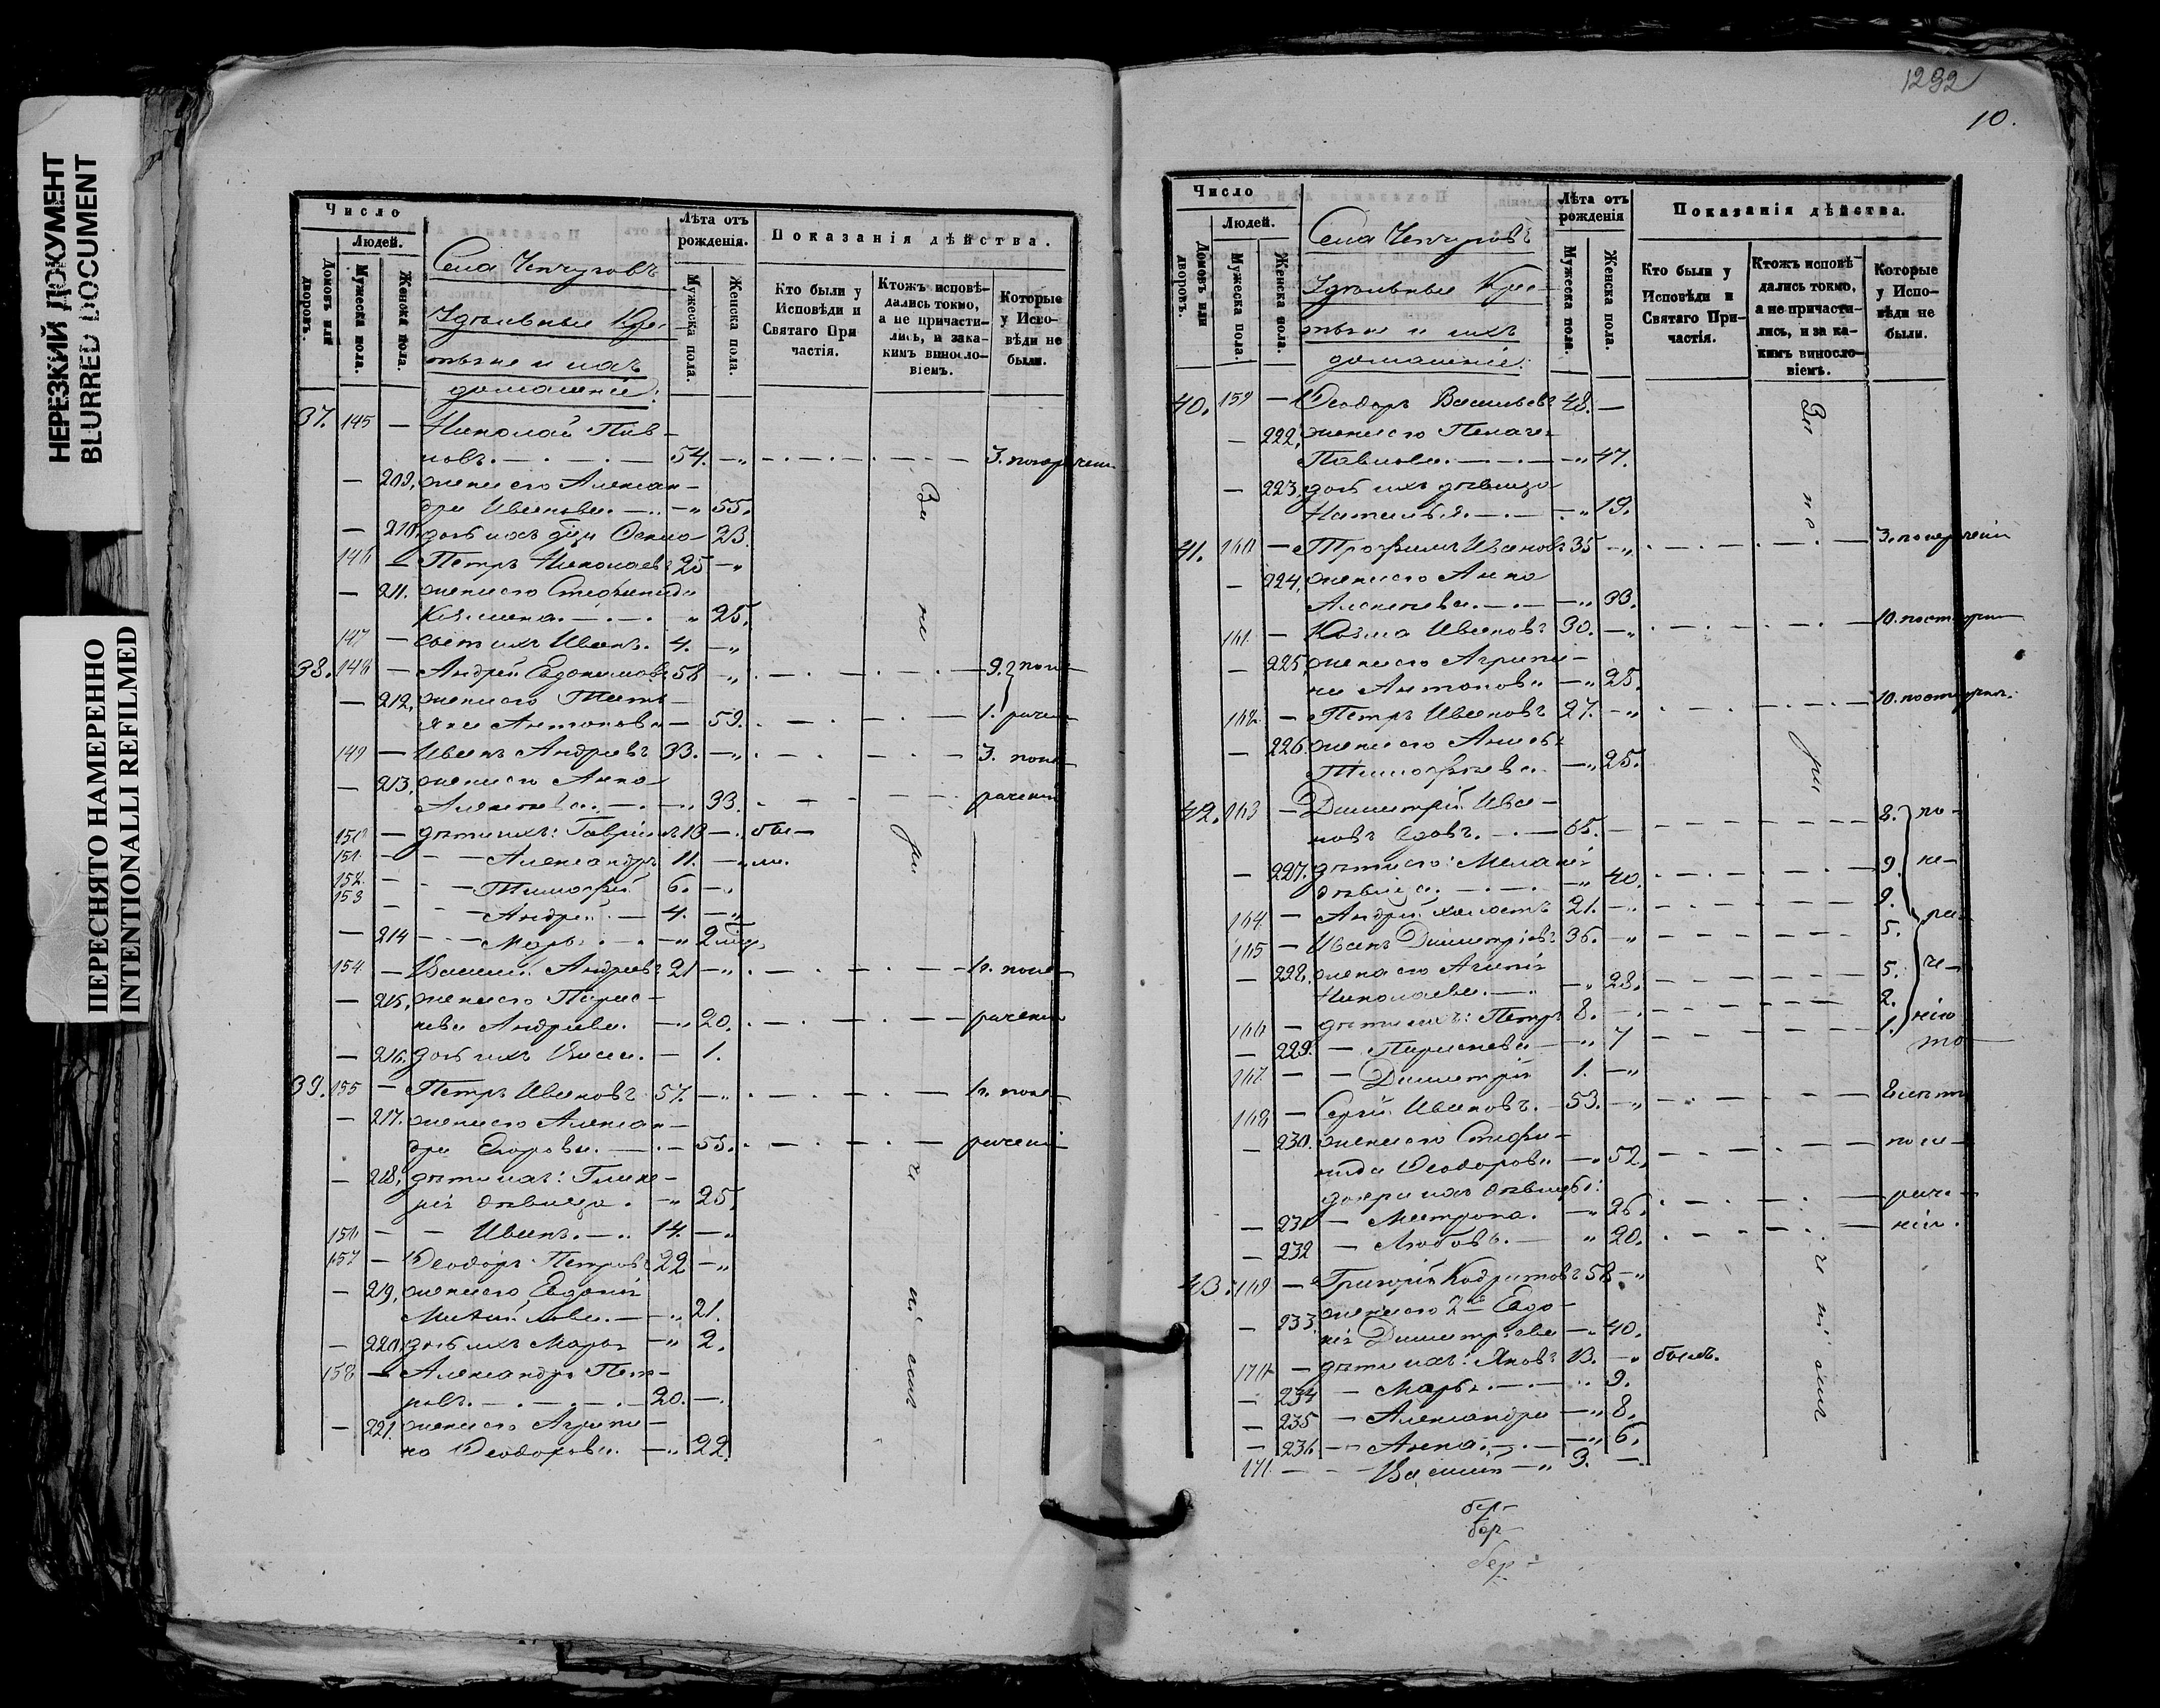 НЕРЕЗКИЙ ДОКУМЕНТ
BLURRED DOCUMENT
ПЕРЕСНЯТО НАМЕРЕННО
INTENTIONALLI REFILMED
Число
Домовъ или дворовъ.
Людей.
Мужеска пола.
Женска пола.
Села Чепчуговъ
Удѣльные Крес-
тьяне и ихъ
домашніе:
Лѣта отъ рожденія.
Мужеска пола.
Женска пола.
Показанія дѣйства.
Кто были у Исповѣди и Святаго Причастія.
Ктожъ исповѣ-
дались токмо,
а не причасти-
лись, и зака-
кимъ винословіемъ.
Которые у Испо-
вѣди не были.
37. 145 — Николай Пав-
ловъ. 54. — 3. понерачен
— 209. жена его Алексан-
дра Иванова. — 55.
— 210. дочь ихъ 23.
146 — Петръ Николаевъ 25 —
— 211. жена его Стефанида
Козмина. " 25.
147 — сынъ ихъ Иванъ. 4. —
38. 148 — Андрей Евдокимовъ 58 — 9. поне-
— 212. жена его Тать-
яна Антонова — 59. 1. рачен
149 — Иванъ Андреевъ 33. — 3. поне-
— 213. жена его Анна
Алексеева. — 33. рачені
150 — дѣти ихъ: Гавріилъ 13 — бы-
151 — Александръ 11. — ли.
152 — Тимофей 6. —
153 — Андрей. — 4. —
— 214 — Марья. — 2
154 — Василій Андреевъ 21 — 1. поне-
— 215. жена его Парас-
кева Андреева. — 20. рачен
— 216. дочь ихъ — 1.
39. 155 — Петръ Ивановъ 57. — 1. поне-
— 217. жена его Алексан-
дра Егорова. — 55. рачені
— 218. дѣти ихъ: Глике-
рія дѣвица. — 25.
156 — Иванъ. — 14. —
157 — Ѳеодоръ Петровъ 22 —
— 219. жена его Евдокія
Михайлова. — 21.
— 220. дочь ихъ Марья — 2.
158 — Александръ Пет-
ровъ. 20. —
— 221. жена его Агрипи-
на Ѳеодорова. — 22.
За не ра че ні емъ
1292
10.
Число
Домовъ или дворовъ.
Людей.
Мужеска пола.
Женска пола.
Села Чепчуговъ
Удѣльные Крес-
тьяне и ихъ
домашніе:
Лѣта отъ рожденія
Мужеска пола.
Женска пола.
Показанія дѣйства.
Кто были у Исповѣди и Святаго При-
частія.
Ктожъ исповѣ-
дались токмо,
а не причасти-
лись, и за ка-
кимъ винословіемъ.
Которые у Испо-
вѣди не были.
40. 159 — Ѳеодоръ Васильевъ 48. —
— 222. жена его Пелагея
Павлова. — 47.
— 223. дочь ихъ дѣвица
Наталья. — 19.
41. 160 — Трофимъ Ивановъ 35 — 3. понерачені
— 224. жена его Анна
Алексеева. — 33.
161. — Козма Ивановъ 30. — 10.
— 225. жена его Агрипи-
на Антонова — 25.
162. — Петръ Ивановъ 27. — 10.
— 226. жена его
Тимофеева. — 25.
42. 163 — Димитрій Ива-
новъ вдовъ. — 65. — 8. по-
— 227. дѣти его: Меланія
дѣвица. — 40. 9. не-
164 — Андрей холостъ 21. — 9.
165 — Иванъ Димитріевъ 36. — 5. ра-
— 228. жена его
Николаева. — 28. 5. че-
166 — дѣти ихъ: Петръ 8. — 2.
— 229. — Параскева — 7 1. нію
167. — Димитрій 1. —
168 — Сергій Ивановъ. — 53. — 8
— 230. жена его Стефа-
нида Ѳеодорова — 52. поне-
дочери ихъ дѣвицы:
— 231 — Матрона. — 26. раче-
— 232 — Любовь. — " 20. нію.
43. 169 — Григорій Кодратовъ 58 —
— 233. жена его 2я Евдо-
кія Димитріева — 40.
170 — дѣти ихъ: Яковъ 13. — былъ.
— 234 — Марья. — 9.
— 235 — Александра — 8.
— 236. — Анна. — 6.
171. — Василій — 3. —
За не ра че ні емъ
бер-
бер-
бер-